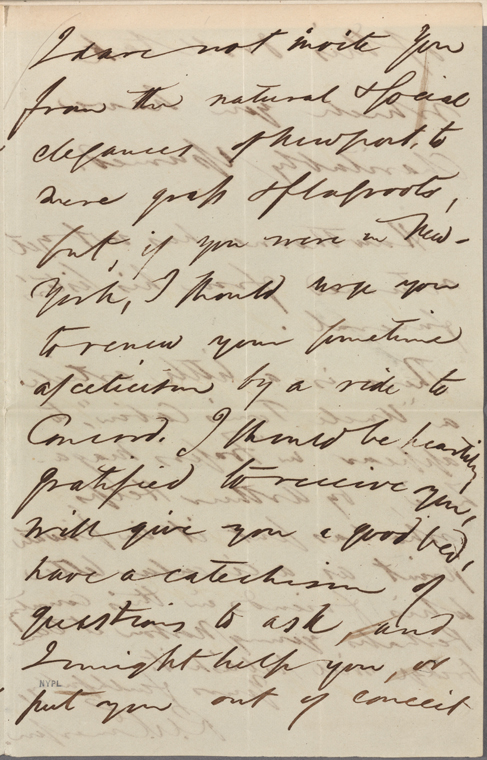 I dare not invite you
from the natural & social
elegances of Newport, to
mere grass & flagroots,
but, if you were in New-
York, I should urge you
to renew your sometime
asceticism by a ride to
Concord. I should be heartily
gratified to receive you,
will give you a good bed,
have a catechism of
questions to ask, and
I might help you, or
put you out of conceit
NYPL